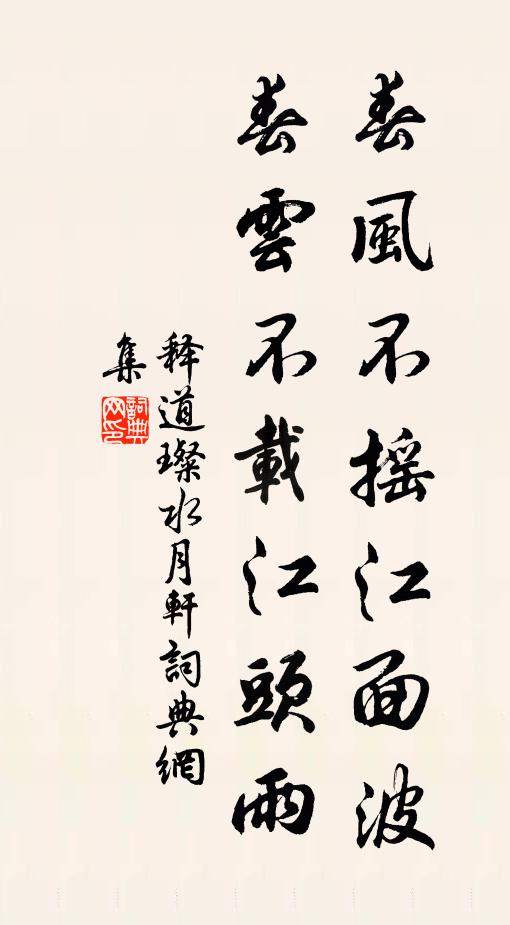 春風不搖江面波
春雲不載江頭雨
释道璨水月軒詞典網
集
詞典网印